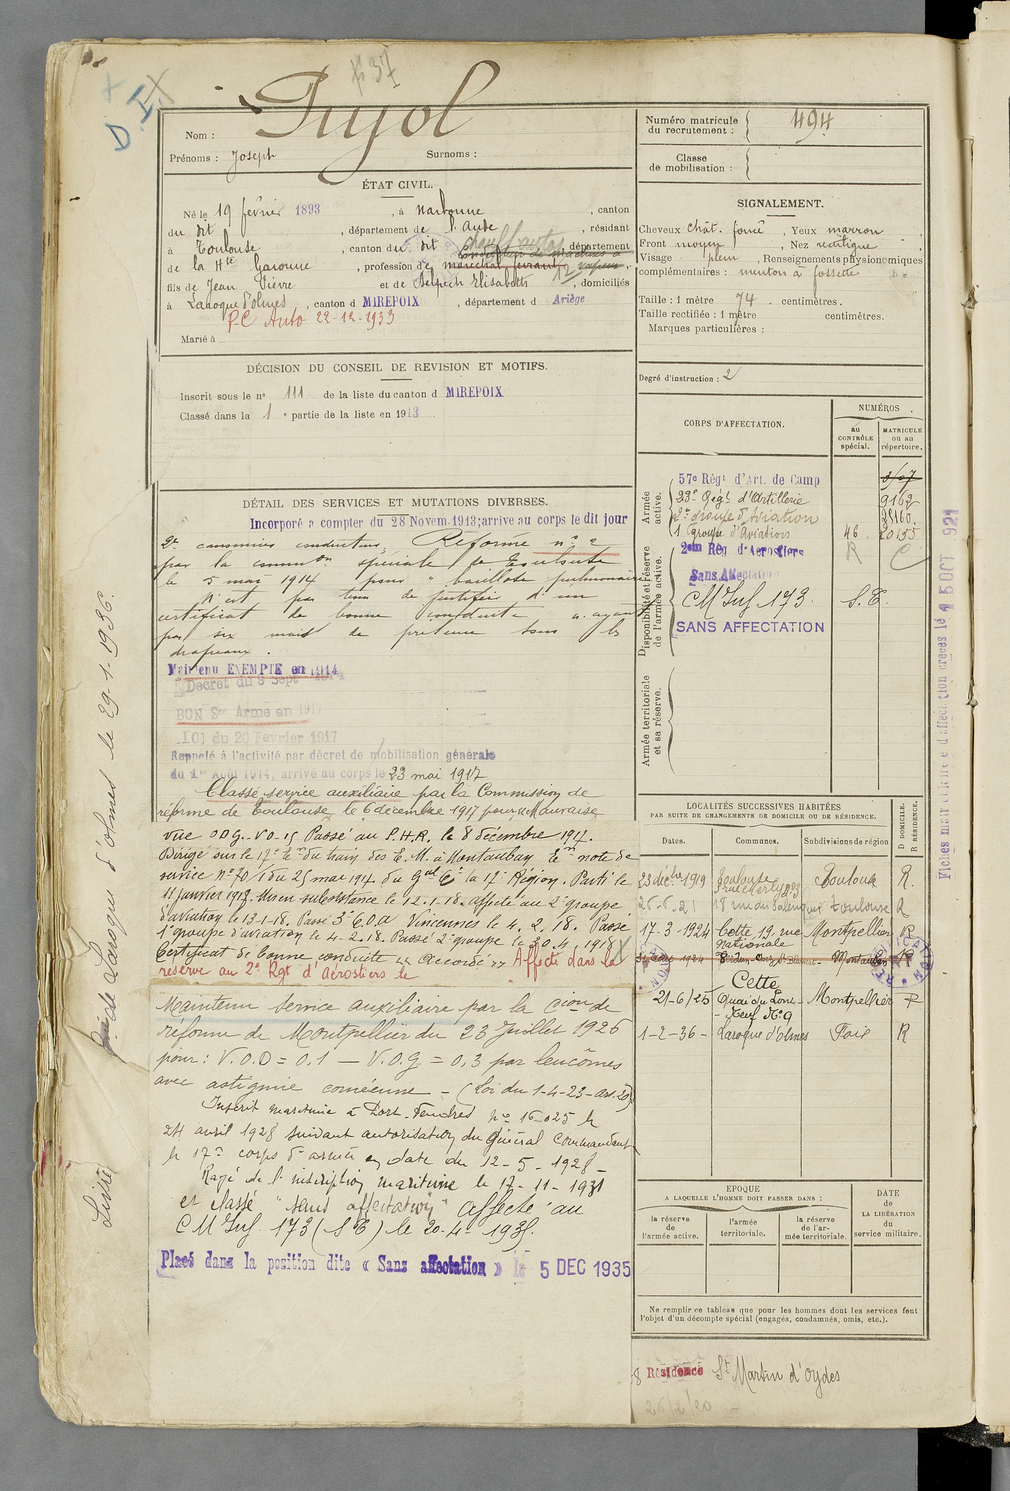 D. IX
Nom : Pujol
Prénoms : Joseph Surnoms :
ÉTAT CIVIL.
Né le 19 février 1893, à Narbonne, canton
du dit, département de l'Aude, résidant
à Toulouse, canton du dit, département
de la Hte Garonne, profession de maréchal ferrant
fils de Jean Pierre et de Delpech Elisabeth, domiciliés
à Laroque d'olmes, canton d MIREPOIX, département d Ariège
P.C Auto 22-12-1933
Marié à
DÉCISION DU CONSEIL DE REVISION ET MOTIFS.
Inscrit sous le no 111 de la liste du canton d MIREPOIX
Classé dans la 1e partie de la liste en 1913
DÉTAIL DES SERVICES ET MUTATIONS DIVERSES.
Incorporé à compter du 28 Novem. 1913; arrive au corps le dit jour
2e canonnier conducteur, Réformé no 2
par la commion spéciale de Toulouse
le 5 mai 1914 pour " bacillose pulmonaire
N'est pas tenu de justifier d'un
certificat de bonne conduite n'ayant
pas six mois de présence sous les
drapeaux.
Maintenu EXEMPTE en 1914
Décret du 9 Sept 1914
BON Sce Armé en 1917
LOI du 20 Février 1917
Rappelé à l'activité par décret de mobilisation générale
du 1er Août 1914, arrivé au corps le 23 mai 1917
Classé service auxiliaire par la Commission de
réforme de Toulouse le 6 décembre 1917 pour Mauvaise
vue OOG. VO. 15 Passé au P.H.R. le 8 décembre 1917.
Dirigé sur le 17e Em du train des E. M. à Montauban Em note de
service No 70/1 du 25 mai 1917 du Gal Ct la 17e Région. Parti le
11 janvier 1918. Mis en subsistance le 12-1-18. affecté au 2e groupe
d'aviation le 13-1-18. Passé 3e C.O.A Vincennes le 4. 2. 18. Passé
1e groupe d'aviation le 4-2-18. Passé 2e groupe le 30.4.1918
Certificat de bonne conduite "Accordé" Affecté dans la
réserve au 2e Rgt d'Aérostiers le
Maintenu service auxiliaire par la Cion de
réforme de Montpellier du 23 Juillet 1926
pour : V.O.D = 0,1 — V.O.G = 0,3 par leucômes
avec astigmie cornéenne - (Loi du 1-4-23-art.20)
Inscrit maritime à Port-Vendres no 16-025 le
24 avril 1928 suivant autorisation du Général Commandant
le 17e corps d'armée en date du 12-5-1928 -
Rayé de l'inscription maritime le 17-11-1931
et classé "sans affectation" affecté au
C M Inf. 173 (S E) le 20-4-1935.
Placé dans la position dite « Sans affectation » le 5 DEC 1935
Numéro matricule du recrutement : 494
Classe de mobilisation :
SIGNALEMENT.
Cheveux chât. foncé, Yeux marron
Front moyen, Nez rectiligne
Visage plein, Renseignements physionomiques
complémentaires : menton à fossette
Taille : 1 mètre 74 centimètres.
Taille rectifiée : 1 mètre centimètres.
Marques particulières :
Degré d'instruction : 2
CORPS D'AFFECTATION.
NUMÉROS
au CONTRÔLE spécial.
MATRICULE ou au répertoire.
Armée active.
57e Régt d'Art. de Camp
23e Régt d'Artillerie 9162
2e groupe d'Aviation
1 groupe d'Aviation 46. 20155
Disponibilité et réserve de l'armée active.
2eme Rég d'Aérostiers R C
Sans Affectation
C M Inf. 173. S.E.
SANS AFFECTATION
Armée territoriale et sa réserve.
LOCALITÉS SUCCESSIVES HABITÉES
PAR SUITE DE CHANGEMENTS DE DOMICILE OU DE RÉSIDENCE.
Dates. Communes. Subdivisions de région D DOMICILE. R RÉSIDENCE.
23 decbre 1919 Toulouse Toulouse R.
Toulouse R
17-3-1924 Cette, 19, rue nationale Montpellier R
21-6/25 Cette Quai du Pont-Neuf No 9 Montpellier
1-2-36- Laroque d'olmes Foix R
EPOQUE
A LAQUELLE L'HOMME DOIT PASSER DANS :
la réserve de l'armée active.
l'armée territoriale.
la réserve de l'armée territoriale.
DATE de LA LIBÉRATION du service militaire.
Ne remplir ce tableau que pour les hommes dont les services font
l'objet d'un décompte spécial (engagés, condamnés, omis, etc.).
Résidence St Martin d'oydes
Fiches matricule et d'affectation créées le 15 OCT 921
de Laroque d'olmes le 29-1-1936.
Livret